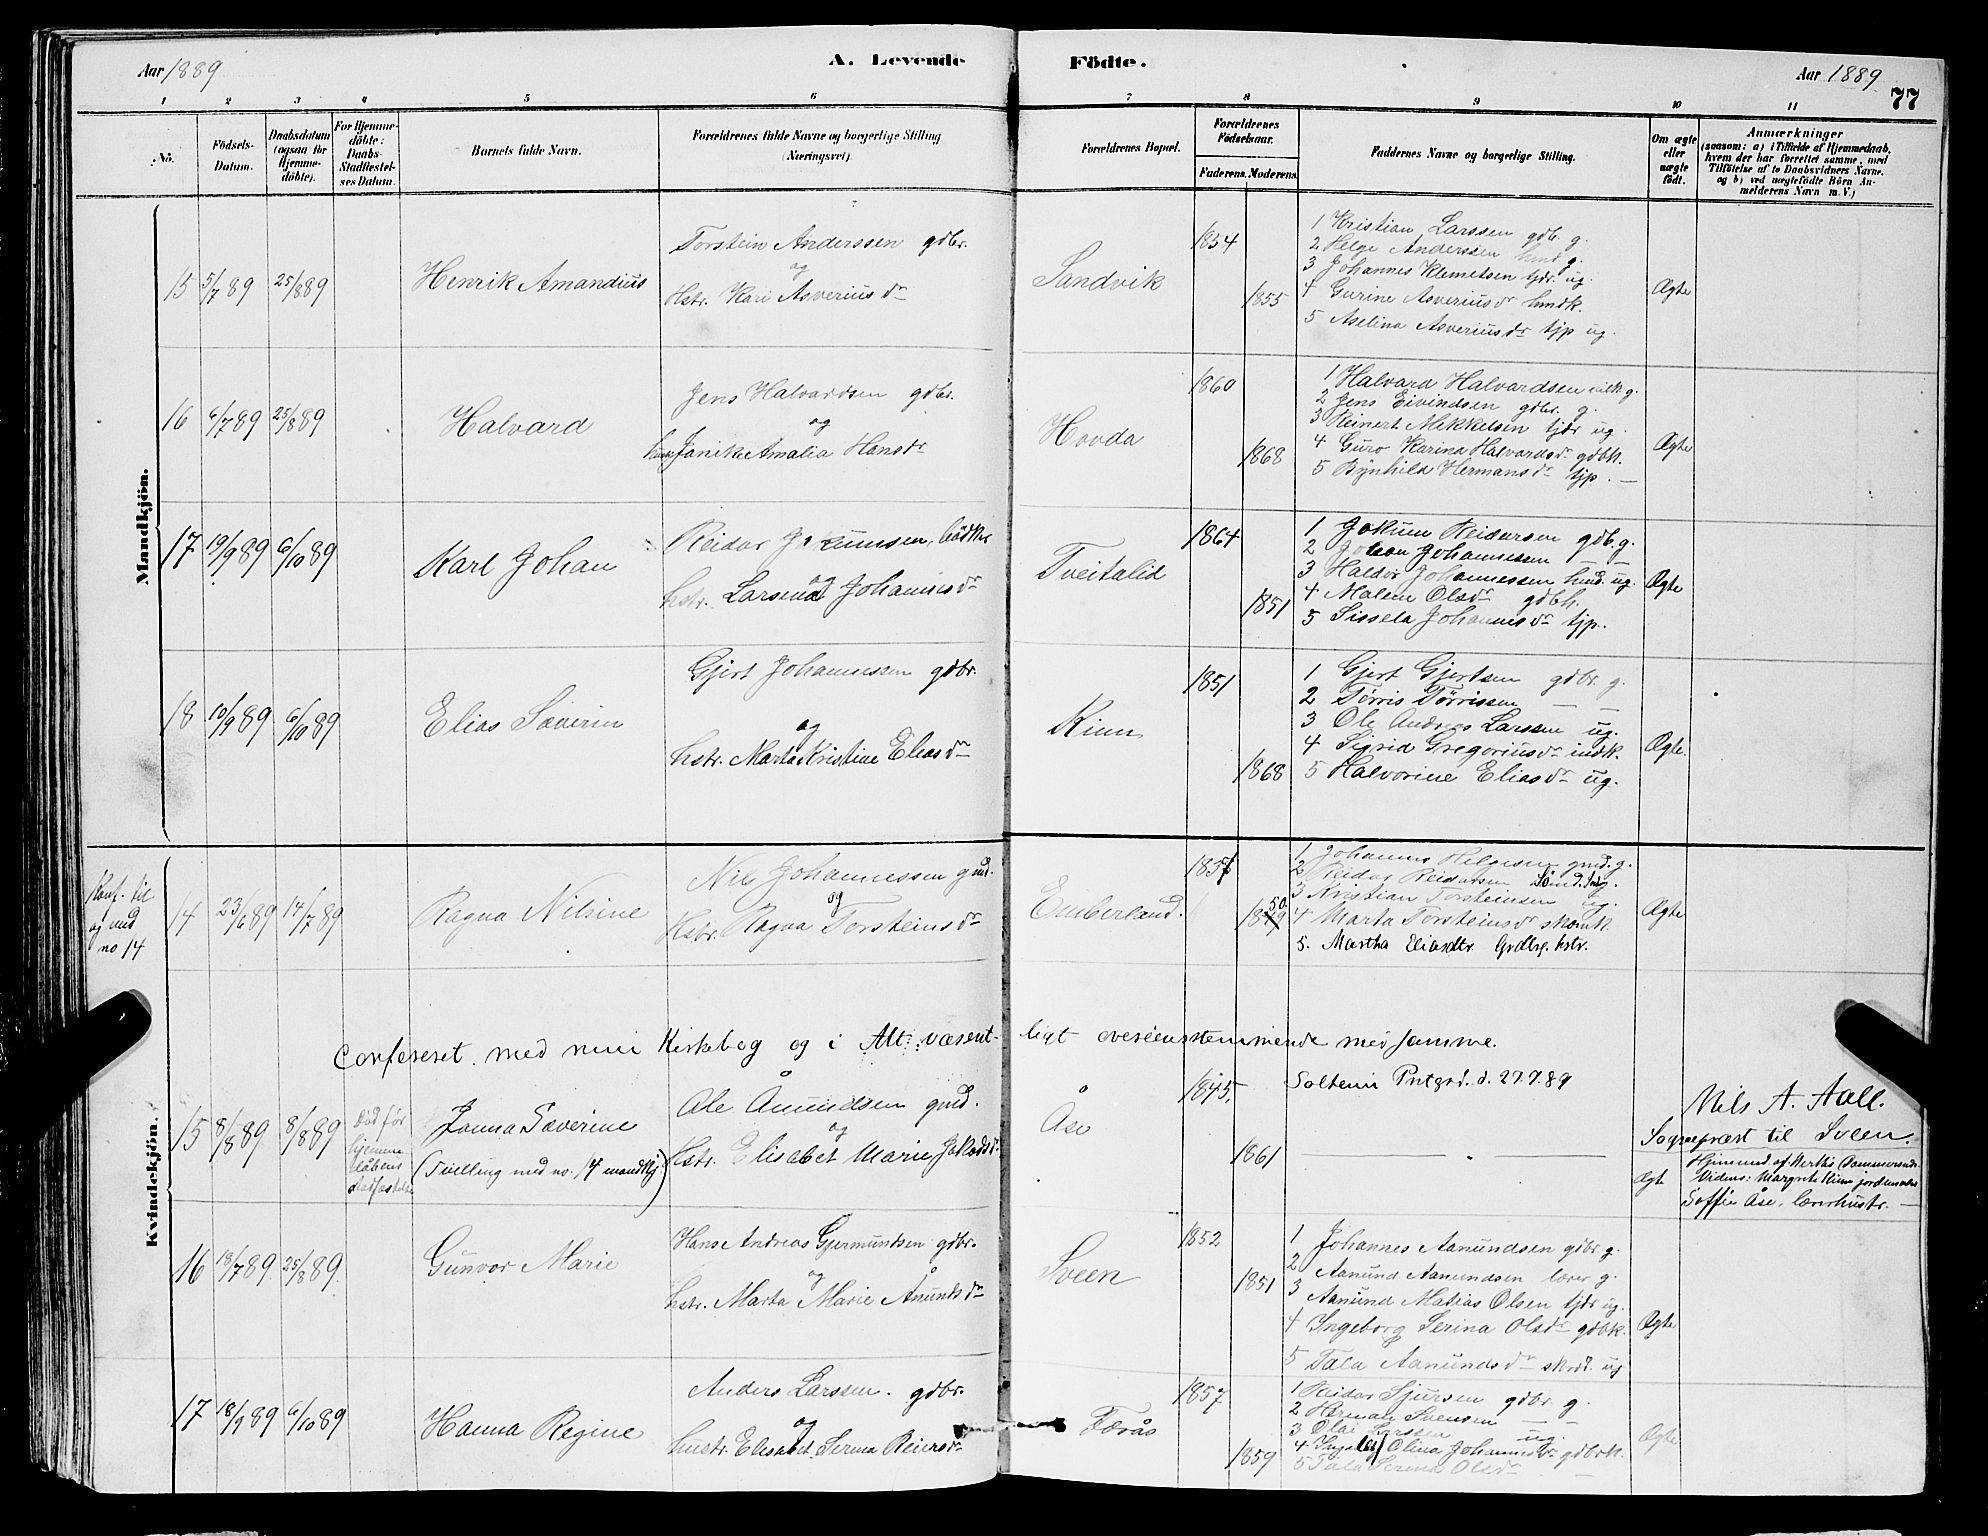 Aar 1889
A. Levende Födte.
Aar 1889
77
1 2 3 4 5 6 7 8 9 10 11
No.
Födsels-Datum.
Daabsdatum (ogsaa for Hjemme-döbte).
For Hjemme-döbte: Daabs-Stadfæstel-ses Datum.
Barnets fulde Navn.
Forældrenes fulde Navne og borgerlige Stilling (Næringsvei).
Forældrenes Bopæl.
Forældrenes Födselsaar.
Faderens. Moderens.
Faddernes Navne og borgerlige Stilling.
Om ægte eller uægte födt.
Anmærkninger
(saasom: a) i Tilfælde af Hjemmedaab, hvem der har forrettet samme, med Tilföielse af to Daabsvidners Navne, og b) ved uægtefödte Börn Anmelderens Navn m. V.)
Mandkjön.
15 5/7 89 25/8 89
Henrik Amandius
Torstein Anderssen gdbr.
og
Hstr. Kari Asverius dr
Sandvik
1854
1855
1 Kristian Larssen gdb. g.
2 Helge Anderssen hmd g.
3 Johannes Klemetsen tjdr. ug.
4 Gurine Asverius dr hmdk.
5 Aselina Asverius dr tjp ug.
Ægte
16 6/7 89 25/8 89
Halvard
Jens Halvardsen gdbr.
og
Janikke Amalia Hans dr
Hovda
1860
1868
1 Halvard Halvardsen g.
2 Jens Eivindsen gdbr. g.
3 Reinert Mikkelsen tjdr ug.
4 Guro Karina Halvards dr gdbk.
5 Bynhild Hermans dr tjp. —
Ægte
17 19/9 89 6/10 89
Karl Johan
Reidar Jokumsen, bödker
og
hstr. Larsina Johannes dr
Tveitalid
1864
1851
1 Jokum Reidarsen gdb. g.
2 Johan Johannessen — —
3 Haldor Johannessen hmd. ug.
4 Malene Ols dr gdbk.
5 Sissela Johannes dr tjp.
Ægte
18 10/9 89 6/10 89
Elias Severin
Gjert Johannessen gdbr.
og
hstr. Marta Kristine Elias dr
Kinn
1851
1868
1 Gjert Gjertsen gdbr. g.
2 Törris Törrissen — —
3 Ole Andreas Larssen ug.
4 Sigrid Gregorius dr indk.
5 Halvorine Elias dr ug.
Ægte.
Kvindekjön.
Konf. til
og med
no 14
14 23/6 89 14/7 89
Ragna Nilsine
Nils Johannessen gmd.
og
Hstr. Ragna Torsteins dr
Emberland.
50.
1 Johannes Helgesen gmd. g.
2 Reidar Reidarsen
3 Kristian Torsteinsen ug.
4 Marta Torsteins dr skomk.
5. Martha Eliasdtr. Grdbrg. hstr.
Ægte
Confereret med min Kirkebog og i Alt væsent-ligt overeensstemmende med samme.
Soltenn Prstgrd. d. 27.7.89
Nils A. Aall.
Sogneprest til Sveen.
15 8/8 89 8/8 89
Död før
hjemme
dåbens
stadfæstelse
Janna Severine
(Tvilling med no. 14 mandkj.)
Ole Åmundsen gmd.
og
Hstr. Elisabet Marie Jakobs dr
Åse
1845.
1861
— " —
Ægte
Hjemmed. af Vidner: Margrete Kinn jordmoder
Soffie Åse, lærerhustr. —
16 13/7 89 25/8 89.
Gunvor Marie
Hans Andreas Gjermundsen gdbr.
og
hstr. Marta Marie Ånunds dr
Sveen
1852
1851
1 Johannes Aanundsen gdbr g.
2 Aanund Aanundsen lærer g.
3 Aanund Matias Olsen tjdr ug.
4 Ingeborg Serina Ols dr gdbk.
5 Tala Aanunds dr ug
Ægte
17 18/9 89 6/10 89
Hanna Regine
Anders Larssen. gdbr.
og
hustr. Elisabet Serina Reiers dr
Færås
1857
1859
1 Reidar Sjursen gdbr g.
2 Herman Svensen — —
3 Olai Larssen ug.
4 Olina Johannes dr gdbrk.
5 Tala Serina Ols dr —
Ægte